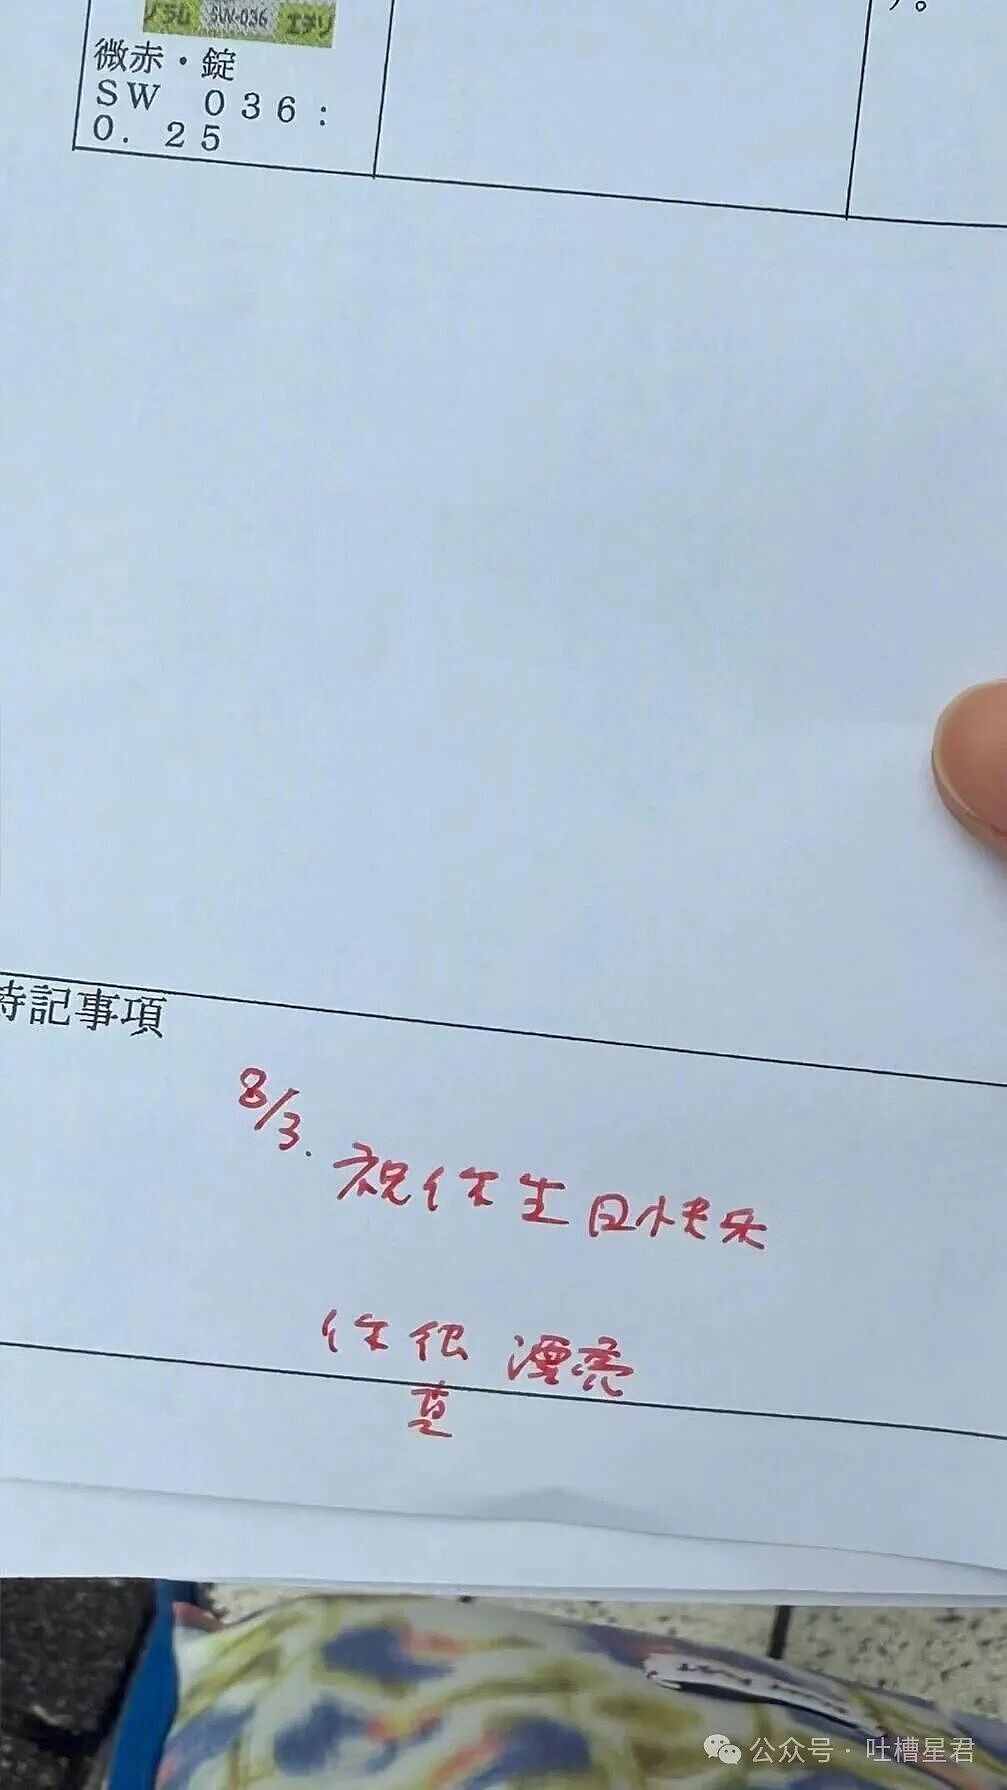 ノラム SW-036 エチゾ
微赤・錠
SW 036:
0.25
す。
特記事項
8/3.
祝你生日快乐
你很漂亮
真
公众号·吐槽星君